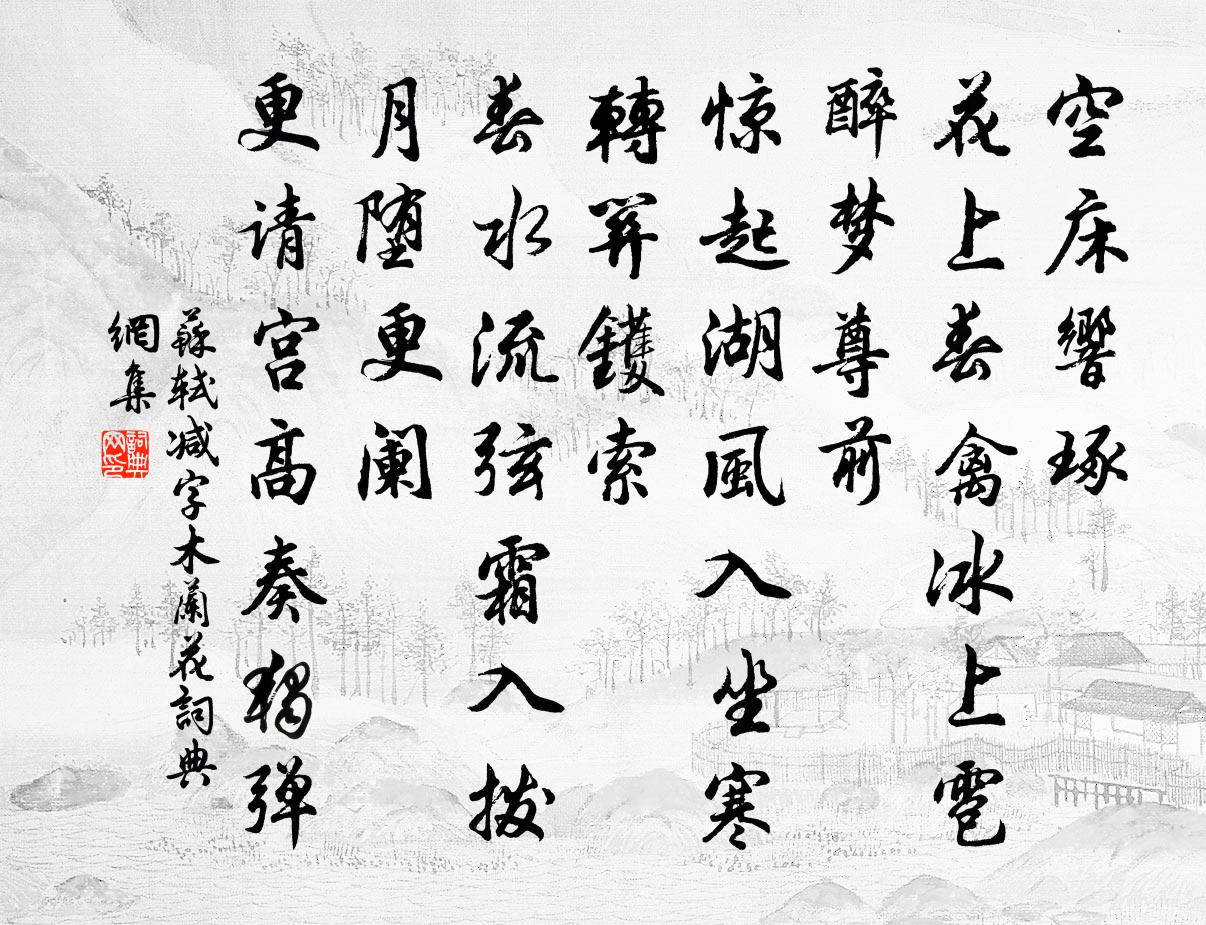 空床響琢
花上春禽冰上雹
醉梦尊前
惊起湖風入坐寒
轉関鑊索
春水流弦霜入拨
月堕更阑
更请宫高奏独弹
蘇轼减字木蘭花詞典
網集
詞典
网印